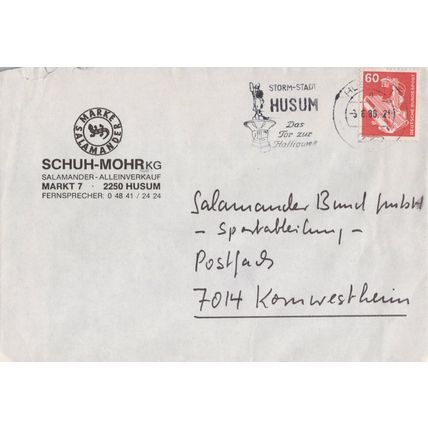 MARKE SALAMANDER
SCHUH-MOHR KG
SALAMANDER-ALLEINVERKAUF
MARKT 7 · 2250 HUSUM
FERNSPRECHER: 0 48 41 / 24 24
STORM-STADT
HUSUM
Das
Tor zur
60
DEUTSCHE BUNDESPOST
Salamander Bund
- Sportabteilung -
Postfach
7014 Kornwestheim